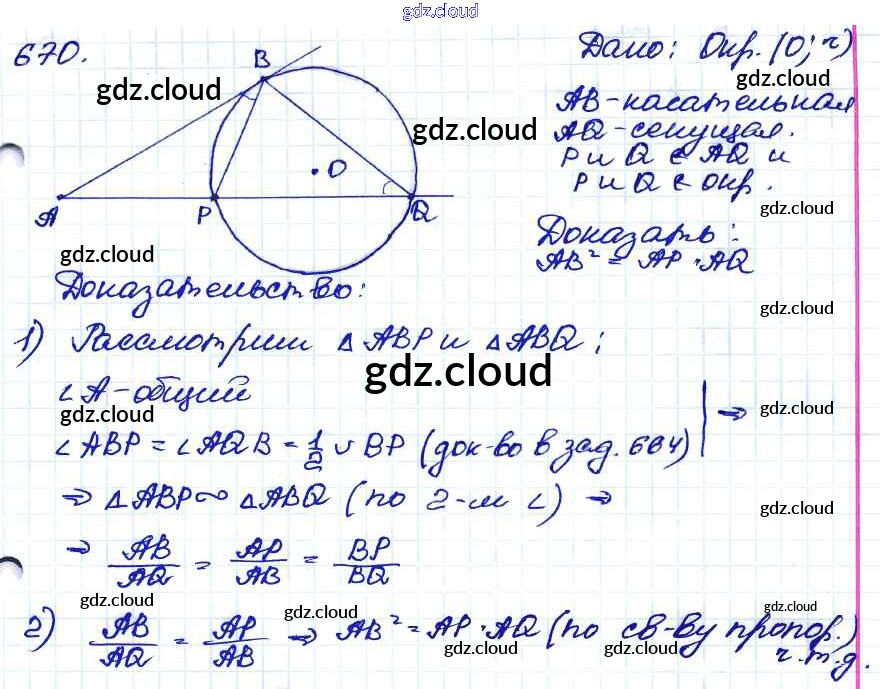 gdz.cloud
670.
Дано: Окр. (O; r)
gdz.cloud
B
gdz.cloud
AB - касательная
gdz.cloud
AQ - секущая.
P и Q ∈ AQ и
P и Q ∈ окр.
O
A
P
Q
gdz.cloud
Доказать:
AB² = AP · AQ
gdz.cloud
Доказательство:
gdz.cloud
1) Рассмотрим △ ABP и △ABQ;
gdz.cloud
∠A - общий
gdz.cloud
gdz.cloud
∠ABP = ∠AQB = 1/2 ∪ BP (док-во в зад. 664) ⇒
⇒ △ABP ∾ △ABQ (по 2-м ∠) ⇒
gdz.cloud
⇒ AB/AQ = AP/AB = BP/BQ
gdz.cloud
gdz.cloud
gdz.cloud
2) AB/AQ = AP/AB ⇒ AB² = AP · AQ (по св-ву пропор.)
gdz.cloud
gdz.cloud
ч.т.д.